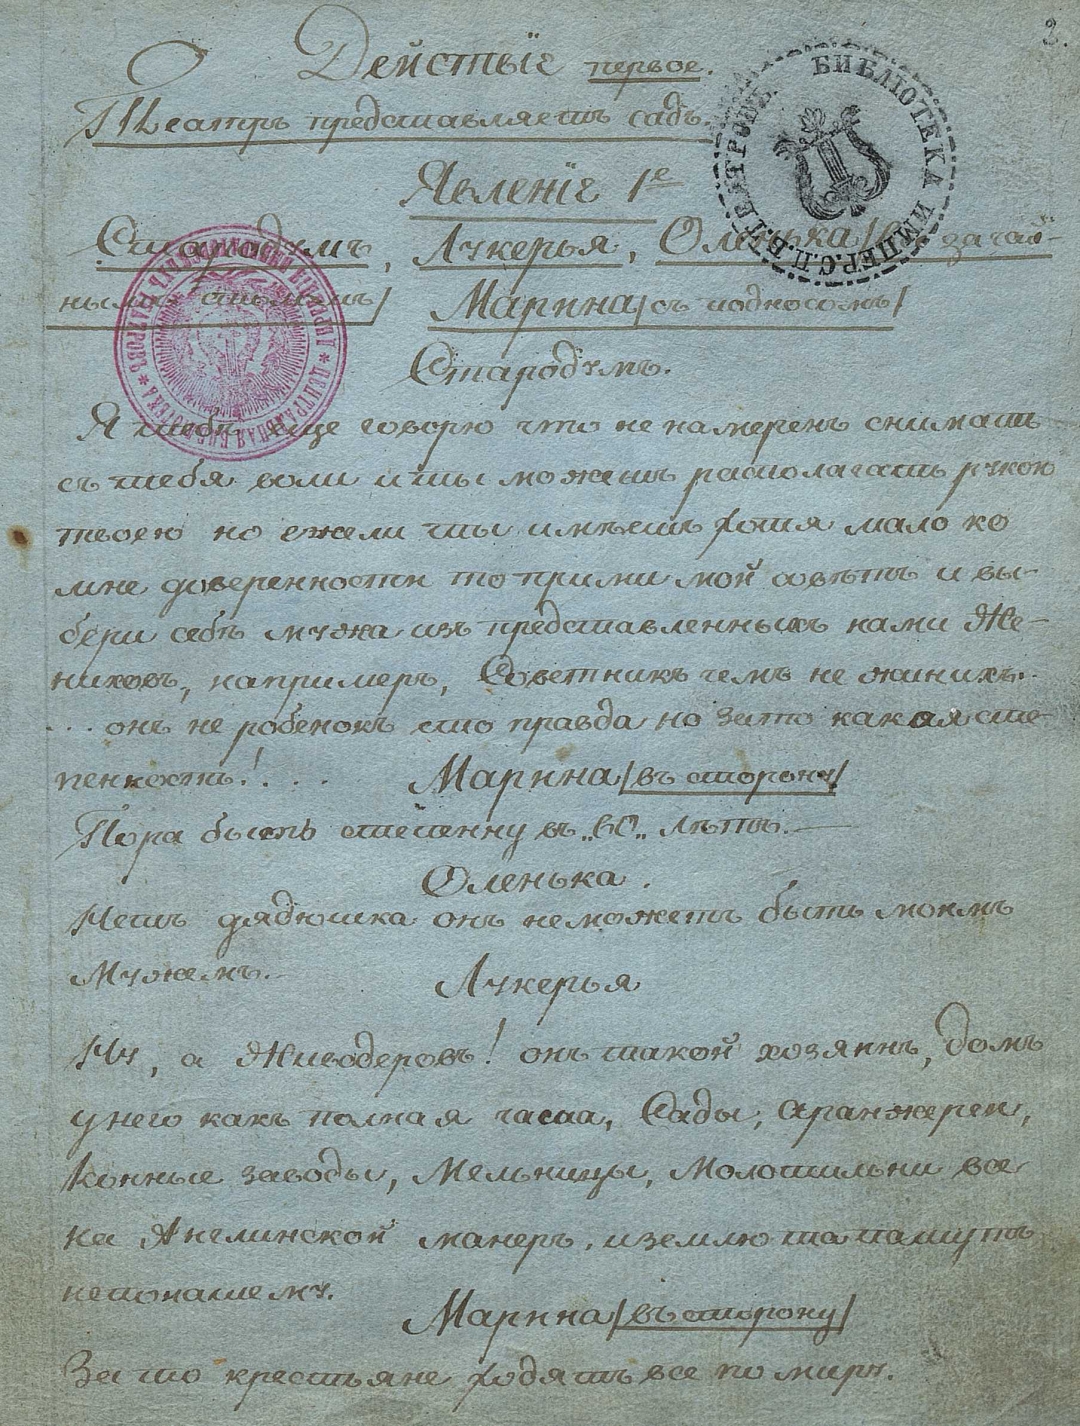 2.
Дѣйствіе первое.
Театръ представляетъ садъ.
Явленіе 1е
Стародумъ, Лукерья, Оленька /за чай-
нымъ столомъ/ Марина /съ подносомъ/
Стародумъ.
Я тебѣ еще говорю что не намеренъ снимать
съ тебя воли и ты можешь располагать рукою
твоею но ежели ты имѣешь хотя мало ко
мне доверенности то прими мой совѣтъ и вы-
бери себѣ мужа изъ представленныхъ нами Же-
ниховъ, напримеръ, Советникъ чемъ не жинихъ..
... онъ не робенокъ это правда но зато какая сте-
пенность!... Марина /въ сторону/
Пора быть степенну въ „60„ лѣтъ.
Оленька.
Нетъ дядюшка онъ неможетъ быть моимъ
Мужемъ.
Лукерья
Ну, а Живодеровъ! онъ такой хозяинъ, домъ
у него какъ полная чаша, Сады, аранжереи,
Конные заводы, Мельницы, Молотильни все
на Аглинской манеръ, и землю та пашутъ
непонашему.
Марина /въ сторону/
За то крестьяне ходятъ все по миру.
БИБЛІОТЕКА ИМПЕР. С.П.Б. ТЕАТРОВЪ
ЦЕНТРАЛЬНАЯ БИБЛІОТЕКА